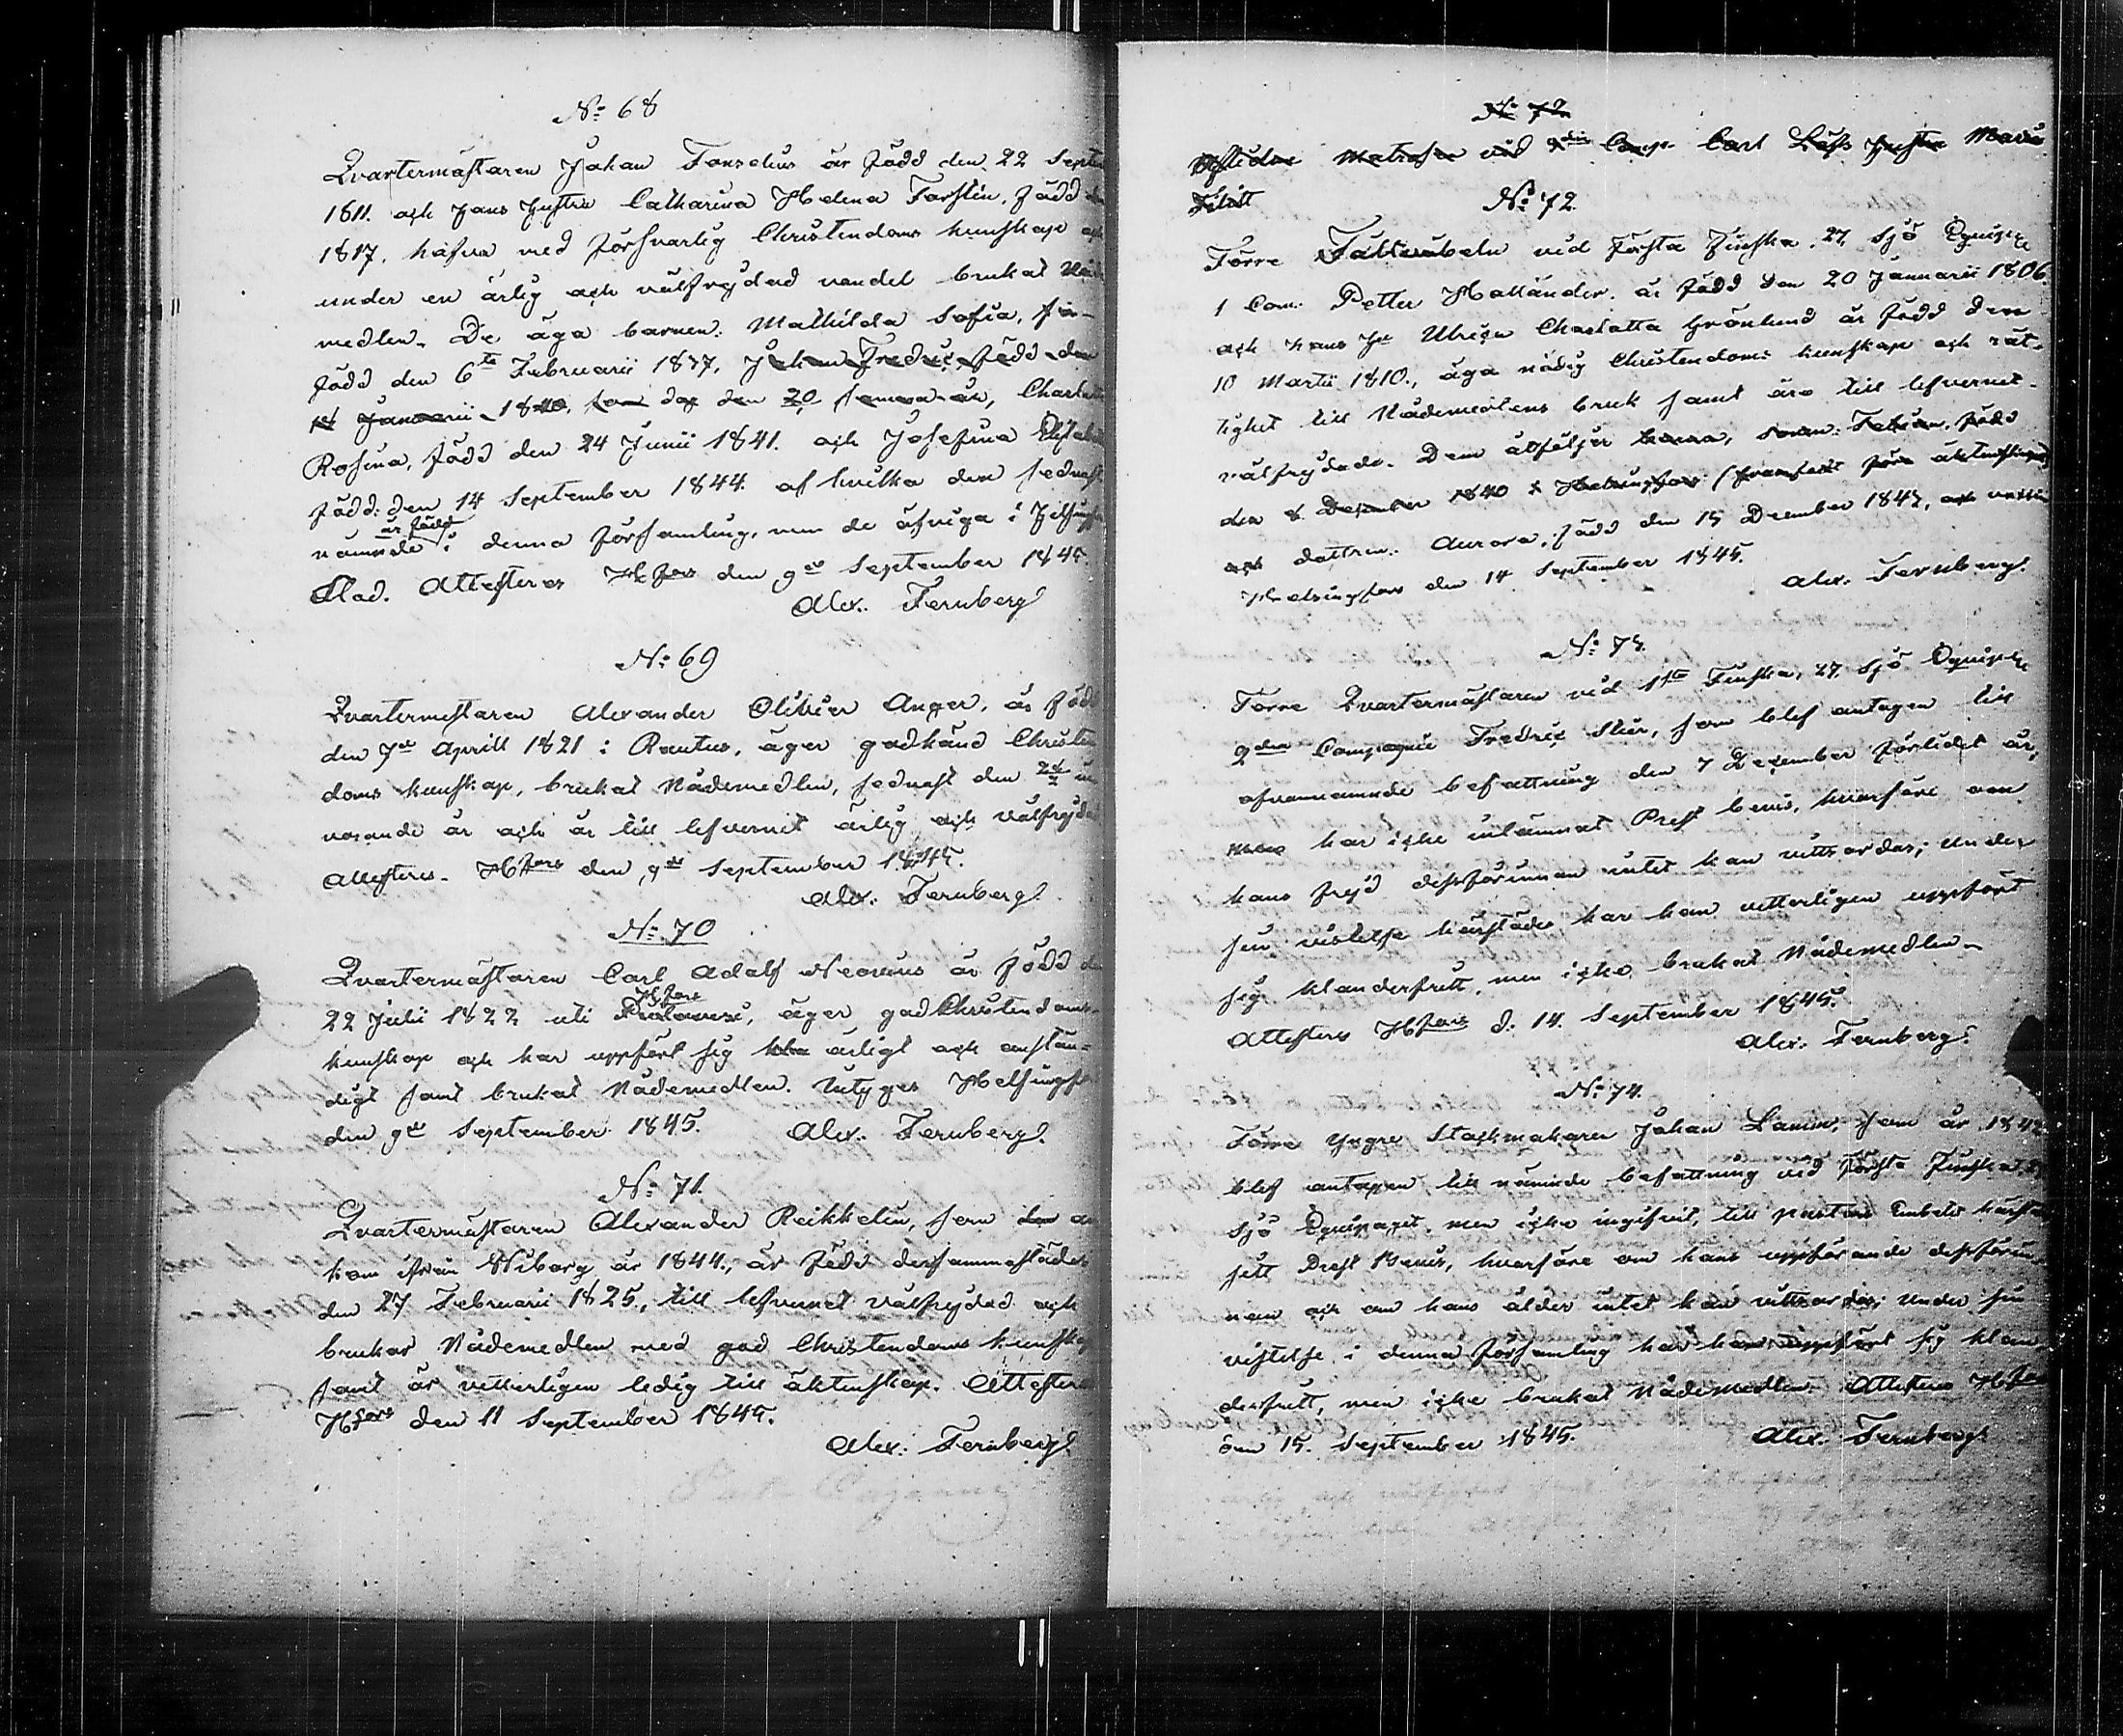 No: 68
Qvartermästaren Johan Fonselius är född den 22 Septem
1811. och hans hustru Catharina Helena Forstén, född den
1817, hafva med försvarlig Christendoms kunskap och
under en ärlig och välfrejdad vandel brukat Nåde
medlen. De äga barnen: Mathilda Sofia,
född den 6te Februarii 1837, Johan Fredric, född den
18 Januarii 1840, som dog den 20 samma år, Charlotta
Rosina, född den 24 Junii 1841. och Josefina
född: den 14 September 1844. af hvilka den sednast
nämnde är född i denna församling, men de öfriga i Helsingfors
Stad. Attesteras Hfors den 9de September 1845.
Alex. Fernberg
No: 69
Qvartermestaren Alexander Olivier Anger, är född
den 7de Aprill 1821 i Rautus, äger godkänd Christen
doms kunskap, brukat Nådemedlen, sednast den
varande år och är till lefvernet ärlig och välfrejdad
Attesteras. Hfors den 9de September 1845.
Alex. Fernberg
No: 70
Qvartermästaren Carl Adolf Neovius är född den
22 Julii 1822 uti Hfors, äger god Christendoms-
kunskap och har uppfört sig ärligt och anstän-
digt samt brukat Nådemedlen. betyges Helsingfors
den 9de September 1845. Alex. Fernberg
No: 71.
Qvartermästaren Alexander Reikkelin, som
kom ifrån Wiborg år 1844., är född dersammastädes
den 27 Februarii 1825, till lefvernet välfrejdad och
brukar Nådemedlen med god Christendoms kunskap
samt är vetterligen ledig till äktenskap. Attesteras
Hfors den 11 September 1845.
Alex: Fernberg
No 72
Afskedne Matrosen vid Comp. Carl Hustru Maria
No: 72.
Förre vid Första Finska, 27 Sjö Equipage
1 Com: Petter Holländer. är född den 20 Januarii 1806.
och hans Hu Ulrica Charlotta Grönlund är född den
10 Martii 1810., äga nödig Christendoms kunskap och rät-
tighet till Nådemedlens bruk samt äro till lefvernet
välfrejdade. Dem åtföljer barna, sonen: Fabian, född
den 8 December 1840 i Helsingfors (framfödt före äktenskapet)
och dottren: Aurora, född den 15 December 1842,
Helsingfors den 14 September 1845.
Alex. Fernberg.
No: 73.
Förre Qvartermästaren vid 1sta Finska, 27 Sjö Equipage
2dra Compagnie Fredric, som blef antagen till
ofvannämnde befattning den 7 December förlidet år,
men har icke inlämnat Prest bevis, hvarföre om
hans frejd dessförinnan intet kan vittsordas; Under
sin vistelse härstädes har han vetterligen uppfört
sig klanderfritt, men icke brukat Nådemedlen.
Attesteras Hfors d: 14. September 1845.
Alex. Fernberg.
No: 74.
Förre Yngre Stockmakaren Johan Lamin, som år 1842
blef antagen till nämnde befattning vid Första Finska
Sjö Equipaget, men icke ingifvit, till Pastors Embetet härst.
sitt Prest Bevis, hvarföre om hans uppförande dessförin
nan och om hans ålder intet kan vittsordas; Under sin
vistelse i denna församling har han uppfört sig klan
derfritt, men icke brukat Nådemedlen. Attesteras Hfors
den 15. September 1845. Alex. Fernberg.